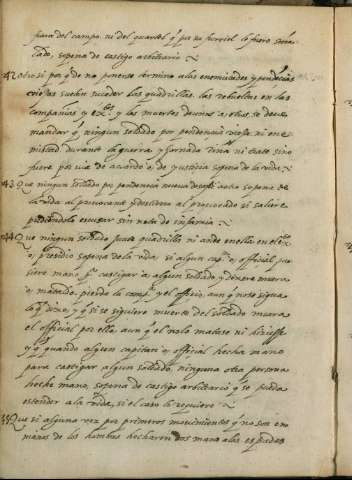 para del campo. ni del quartel q̃ por su furriel le fuere seña
lado, so pena de castigo arbitrario
42. Otro si por q̃ de no ponerse termino a las enemistades y pendencias
viejas suelen suceder las quadrillas, las rebueltas en las
compañias y exto. y las muertes de unos a otros, se deve
mandar q̃ ningun soldado por pendencia vieja ni ene
mistad durante la guerra y jornada riña ni trate sino
fuere por via de acuerdo o de justicia so pena de la vida
43. Que ningun soldado por pendencia nueva so pena de
la vida al provocante
pudiendola escusar sin nota de infamia
44. Que ningun soldado junte quadrilla ni ande en ella en el exto.
o presidio so pena de la vida. si algun capn. o official pu
siere mano pa. castigar a algun soldado y muera
o matado. pierda la compa. y el officio, aunq̃ no se sigua
lo q̃ dixo, y q̃ si se siguiere muerte del soldado muera
el official por ella, aunq̃ el no lo matase ni hiriesse
y q̃ quando algun capitan o official hecha mano
para castigar algun soldado, ninguna otra persona
heche mano, so pena de castigo arbitrario q̃ se pueda
estender a la vida, si el caso lo requiere
45. Que si alguna vez por primeros movimientos q̃ no son en
manos de los hombres hecharen dos mano a las espadas